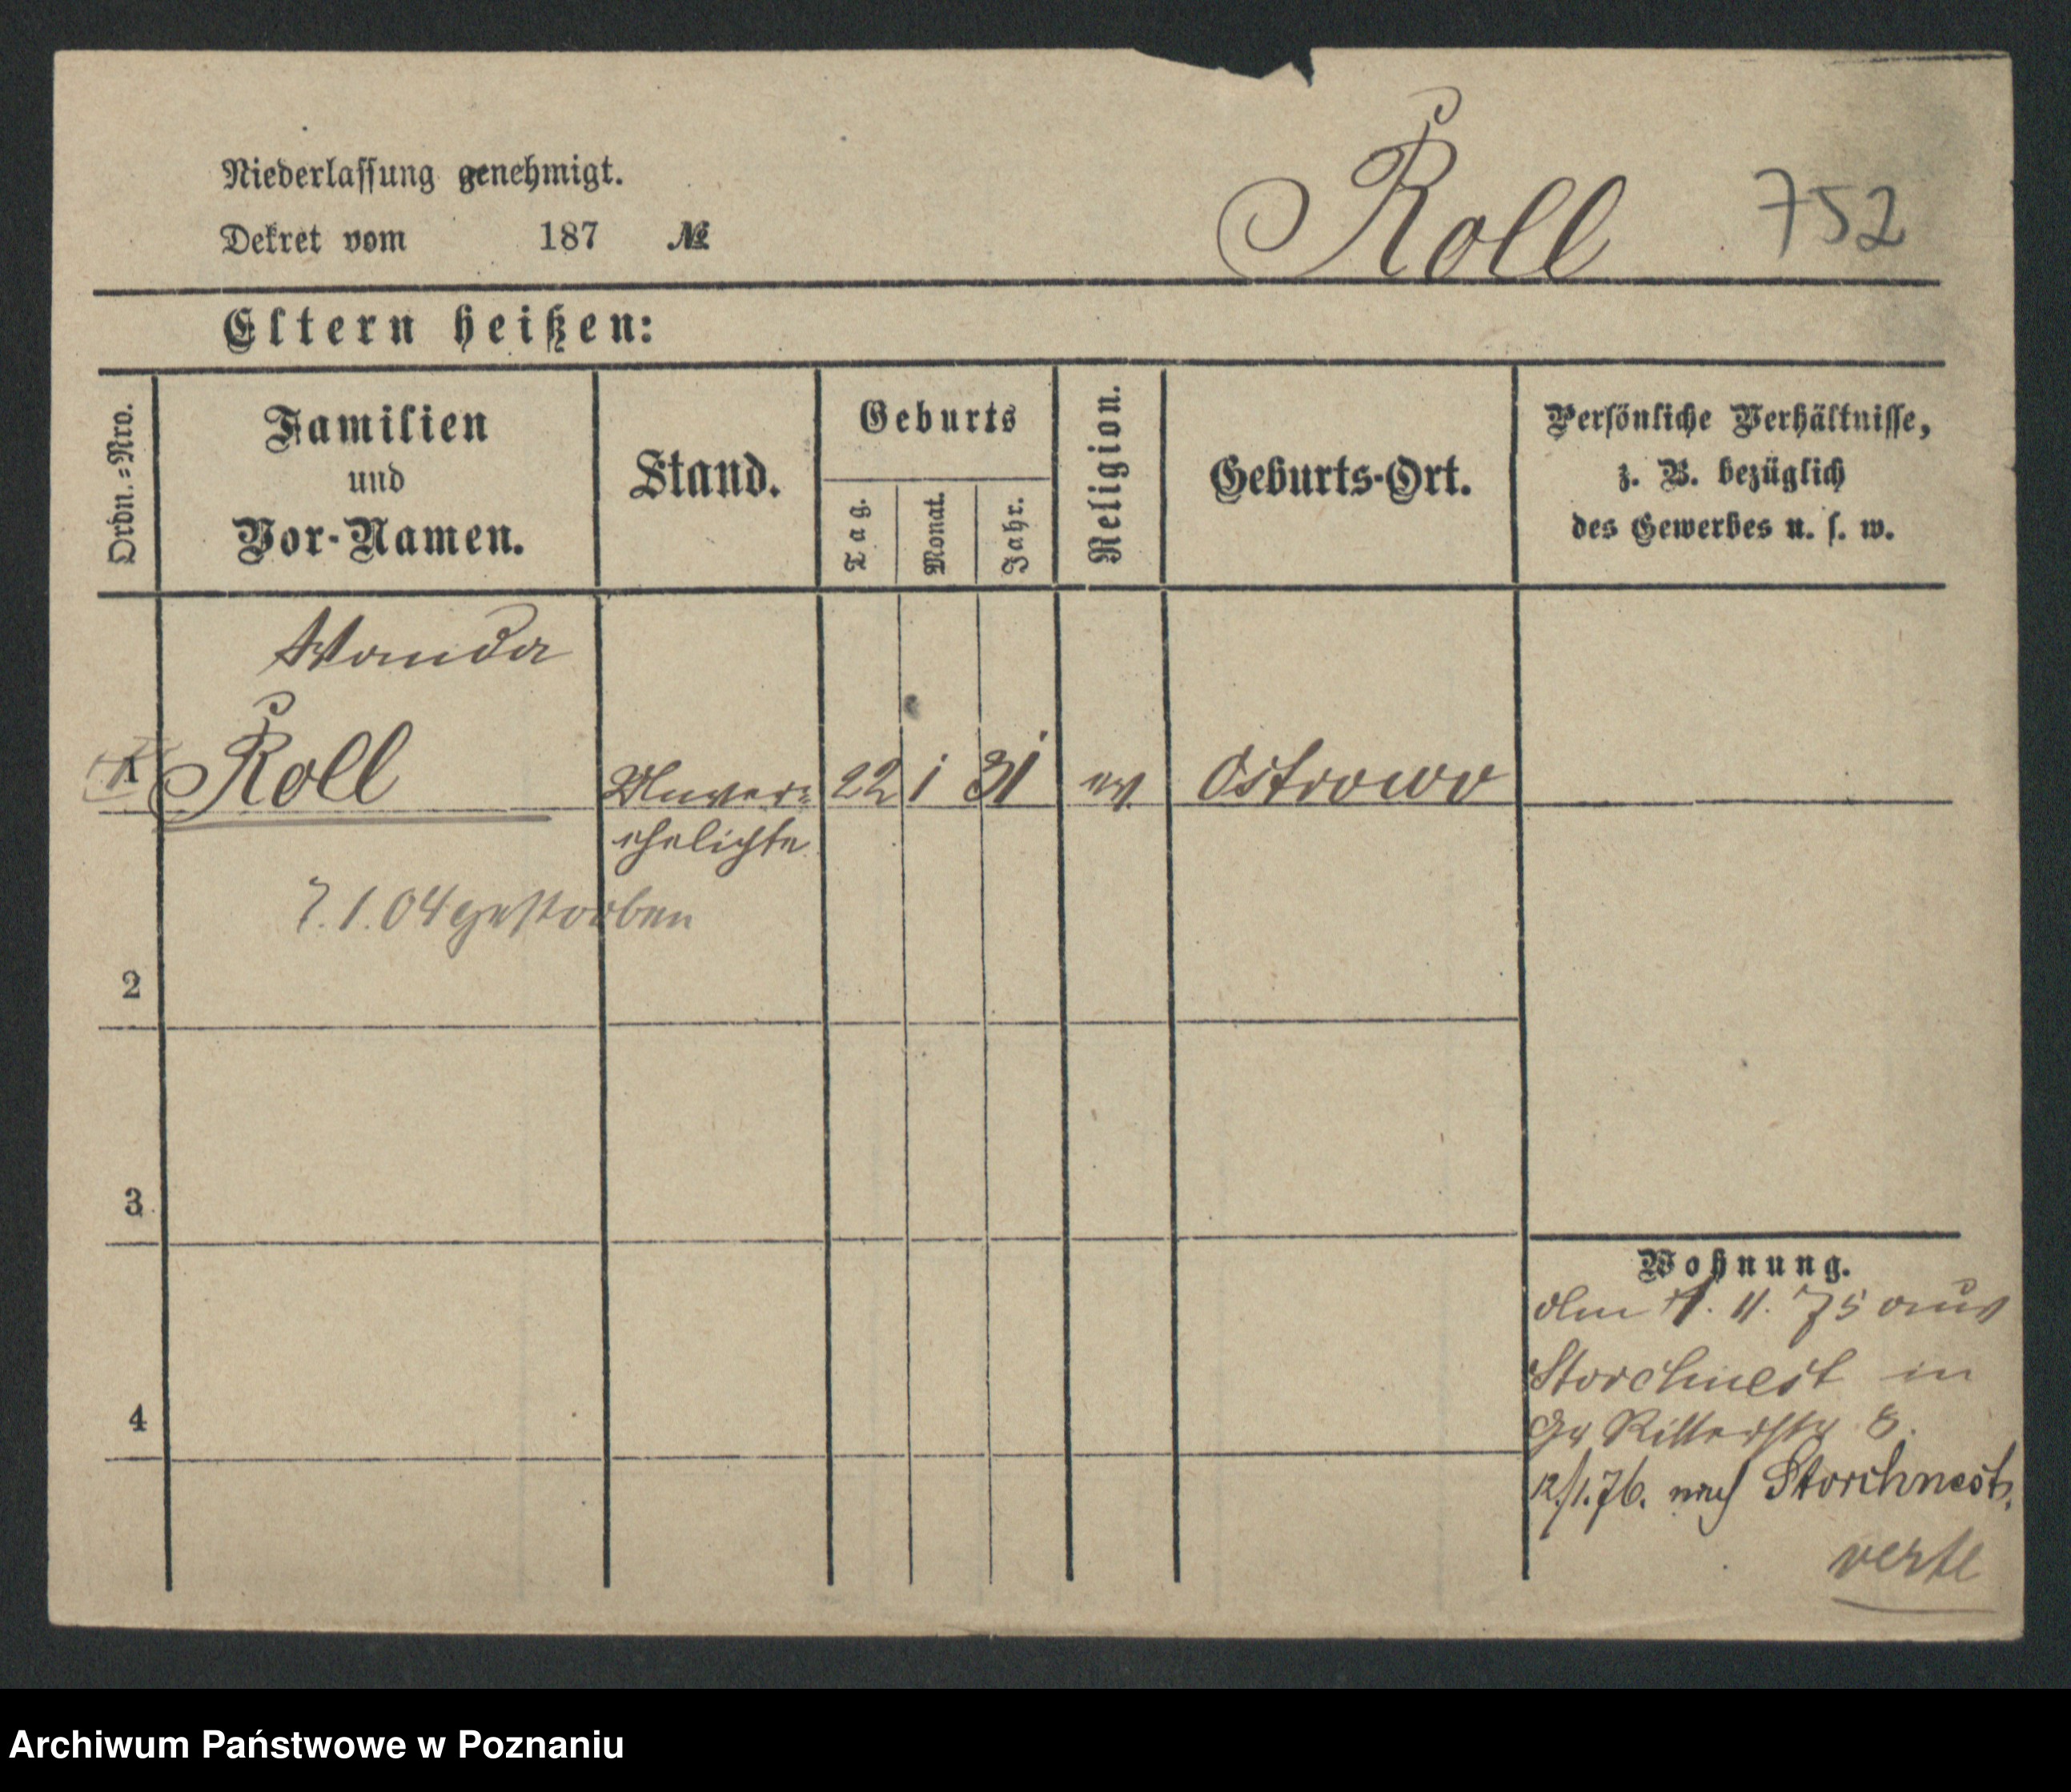 Niederlassung genehmigt.
Dekret vom 187 №
Roll 752
Eltern heißen:
Ordn.=Nro.
Familien
und
Vor-Namen.
Stand.
Geburts
Tag.
Monat.
Jahr.
Religion.
Geburts-Ort.
Persönliche Verhältnisse,
z. B. bezüglich
des Gewerbes u. s. w.
Wanda
1 Roll Unver= 22 1 31 ev. Ostrowo
ehelichte
7.1.04 gestorben
2
3
4
Wohnung.
11. 75 aus
Storchnest in
Gr Ritterstr 8.
12/1.76. nach Storchnest.
verte
Archiwum Państwowe w Poznaniu